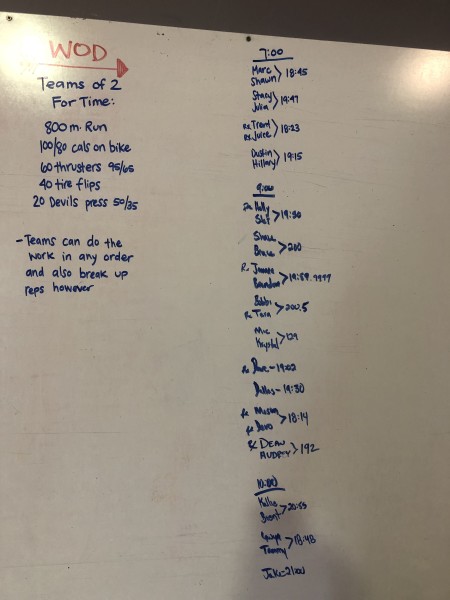 WOD
Teams of 2
For Time:
800 m. Run
100/80 cals on bike
60 thrusters 95/65
40 tire flips
20 Devils press 50/35
- Teams can do the
work in any order
and also break up
reps however
7:00
Marc
Shawn > 18:45
Stacy
Julia > 19:47
Rx Trent
Rx Juice > 18:23
Dustin
Hillary > 19:15
9:00
Holly
> 19:30
> 200
Brandon > 19:59.9999
Bobbi
Rx Tara > 200.5
Mic
Krystal > 129
Rx Dave - 19:02
Dallas - 19:30
> 18:14
Rx DEAN
AUDREY > 192
10:00
Kellie
Brent > 20:55
Tammy > 18:48
Jake - 21:00